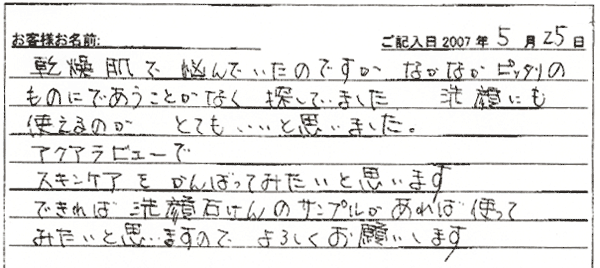 お客様お名前: ご記入日2007年5月25日
乾燥肌で悩んでいたのですが なかなかピッタリの
ものにであうことがなく 探していました 洗顔にも
使えるのが とてもいいと思いました。
アクアラビューで
スキンケアを がんばってみたいと思います
できれば洗顔石けんのサンプルがあれば使って
みたいと思いますので よろしくお願いします